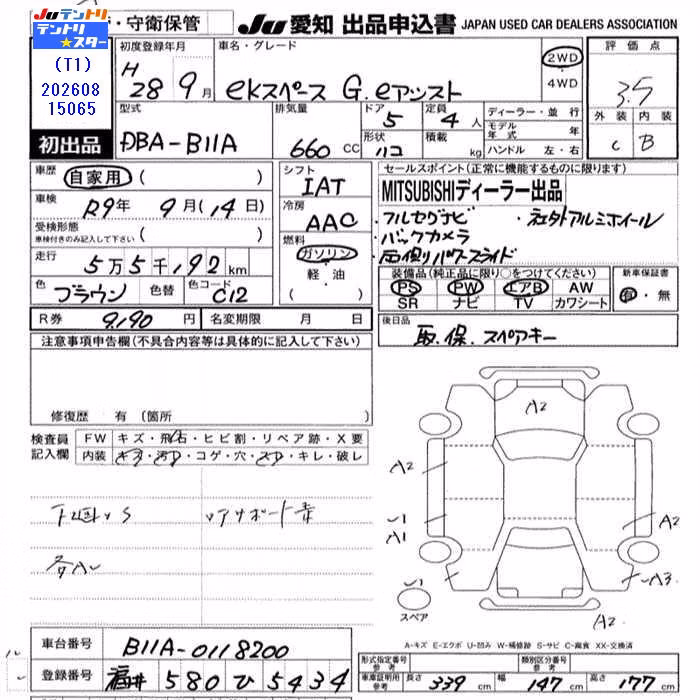 JU テントリ
テントリ★スター
(T1)
202608
15065
・守衛保管
JU 愛知 出品申込書 JAPAN USED CAR DEALERS ASSOCIATION
初出品
初度登録年月
H 28 9月
車名・グレード
ekスペース G.eアシスト
2WD・4WD
評価点
3.5
外装 内装
C B
型式
DBA-B11A
排気量
660 CC
ドア 5
形状 ハコ
定員 4人
積載 kg
ディーラー・並行
モデル年式 年
ハンドル 左・右
車歴 自家用 ( )
車検 R9年 9月(14日)
受検形態
車検付きのみ記入して下さい ( )
走行 5万5千192km
色 ブラウン 色替 色コード C12
シフト
IAT
冷房
AAC
燃料
ガソリン
軽・油
セールスポイント(正常に機能するものに限ります)
MITSUBISHIディーラー出品
・フルセグナビ ・社外アルミホイール
・バックカメラ
・左側リパワースライド
装備品(純正品に限り○をつけてください)
PS PW エアB AW
SR ナビ TV カワシート
新車保証書
有・無
R券 9,190円 名変期限 月 日
後日品
取.保.スペアキー
注意事項申告欄(不具合内容等は具体的に記入して下さい)
修復歴 有(箇所 )
検査員記入欄
FW キズ・飛石・ヒビ割・リペア跡・X要
内装 キズ・汚レ・コゲ・穴・スレ・キレ・破レ
下廻りS
各A
A2
A2
A1
A2
A3
A2
スペア
A-キズ E-エクボ U-凹み W-補修跡 S-サビ C-腐食 XX-交換済
車台番号 B11A-0118200
登録番号 福井 580 ひ 5434
形式指定番号参考
類別区分番号参考
車庫証明用参考 長さ 339cm 幅 147cm 高さ 177cm